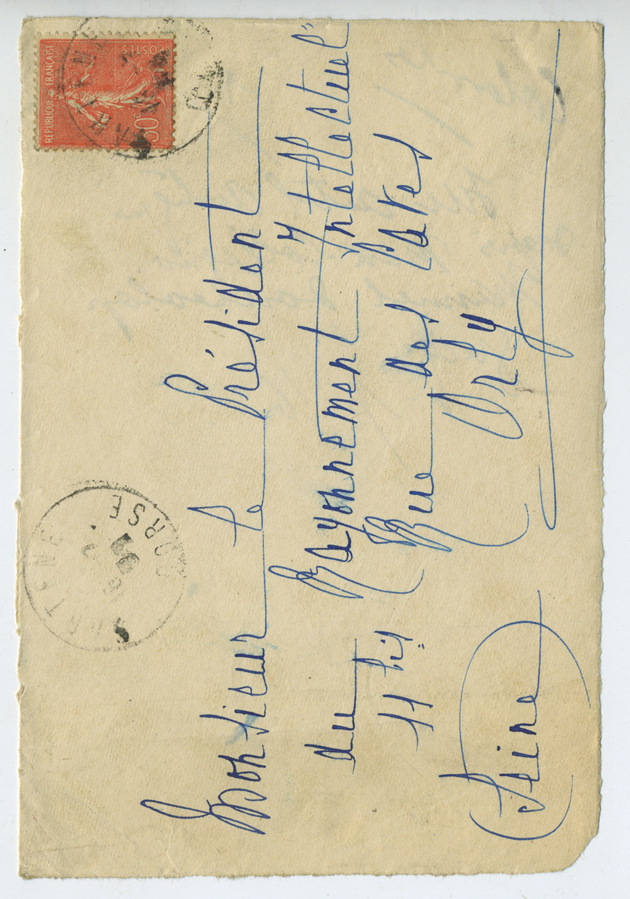 Monsieur le Président
du Rayonnement Intellectuel"
11 bis Rue des Caves
Orly
(Seine)
REPUBLIQUE FRANÇAISE
POSTES
50c
SARTENE
CORSE
SARTENE